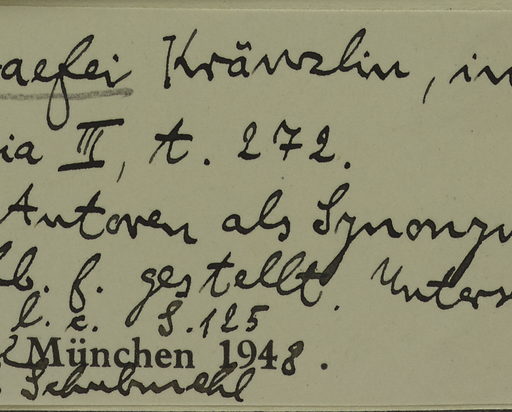 aefei Kränzlin, in
ia III, t. 272.
Autoren als Synony
lb. f. gestellt. Unters
l. c. S. 125
München 1948.
Schubmehl